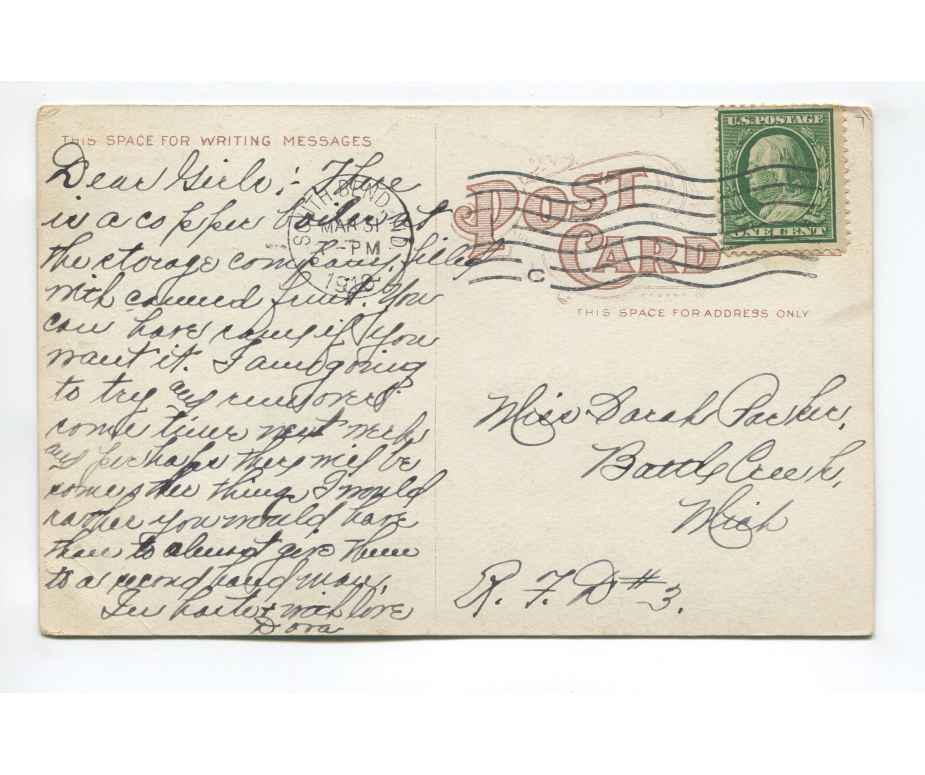 THIS SPACE FOR WRITING MESSAGES
Dear Girls:- There
is a copper boiler at
the storage company filled
with canned fruit. You
can have same if you
want it. I am going
to try and run over
some time next week
and perhaps there will be
some other things I would
rather you would have
than to almost give them
to a second hand man.
In haste + with love
Dora
SOUTH BEND, IND.
MAR 31
7-PM
U.S. POSTAGE
ONE CENT
POST
CARD
C
THIS SPACE FOR ADDRESS ONLY
Miss Sarah Parker,
Battle Creek,
Mich
R. F. D # 3.